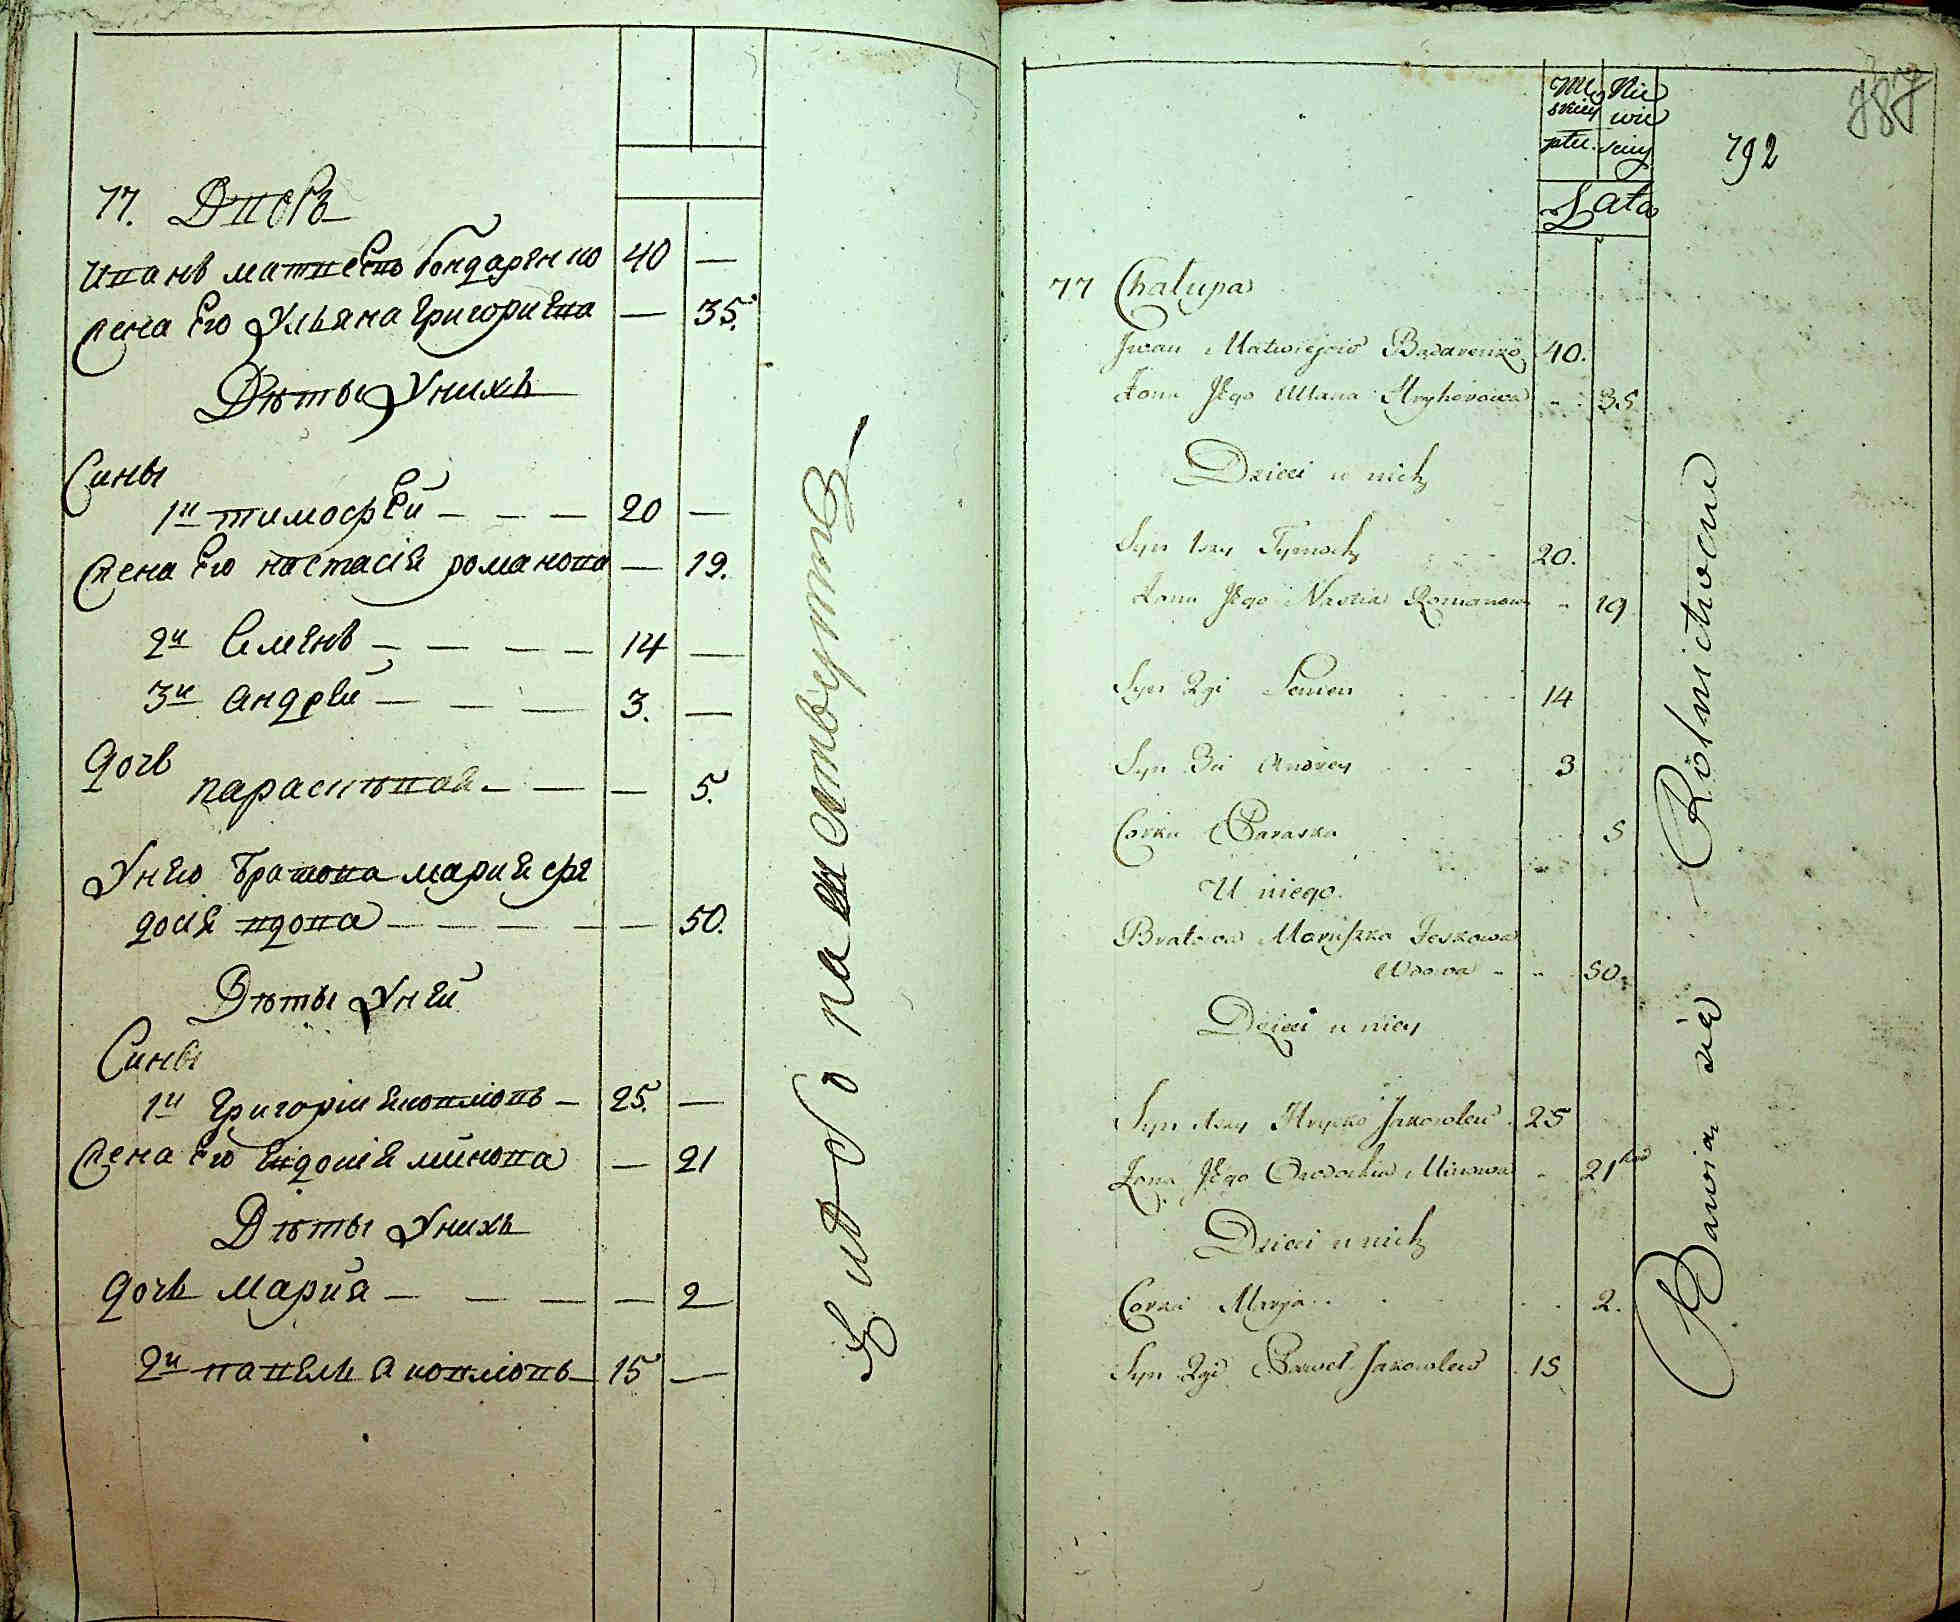 77. Дворъ
Иванъ матвеевъ бондаренко 40 —
жена Его Ульяна Григориева — 35.
Дѣты Унихъ
Сины
1й тимофей — — — 20 —
жена Его настасія романова — 19.
2й Семенъ — — — — 14 —
3й андрей — — — 3. —
дочь
парасковая — — — 5.
Унею братова мария фе
досія вдова — — — — — 50.
Дѣты Уней
Сины
1й Григорій яковлювъ — 25. —
жена Его Евдокия минова — 21
Дѣты Унихъ
дочь мария — — — — 2
2й павель яковлювъ 15 —
хлѣбопашествуитъ
787
792
Mę Nie
skiey wie
płeć sciey
Lata
77 Chałupa
Jwan Matwiejow Bądarenko 40.
Żona Jego Ullana Hryhorowa - 35
Dzieci u nich
Syn 1szy Tymoch 20.
Żona Jego Nastia Romanowa - 19
Syn 2gi Semen 14
Syn 3ci Andrey 3
Corka Paraska 5
U niego
Bratowa Maryszka Feskowa
Wdowa - - 50.
Dzieci u niey
Syn 1szy Hrycko Jakowlew 25
Żona Jego Owdochia Minowa - 21
Dzieci u nich
Corka Marja 2.
Syn 2gi Paweł Jakowlew 15
Bawią się Rolnictwem